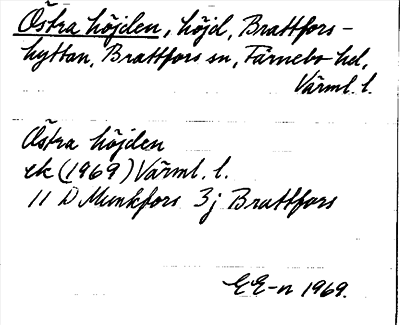 Östra höjden, höjd, Brattfors-
hyttan, Brattfors sn, Färnebo hd,
Värml. l.
Östra höjden
ek (1969) Värml. l.
11 D Munkfors 3j Brattfors
EE-n 1969.